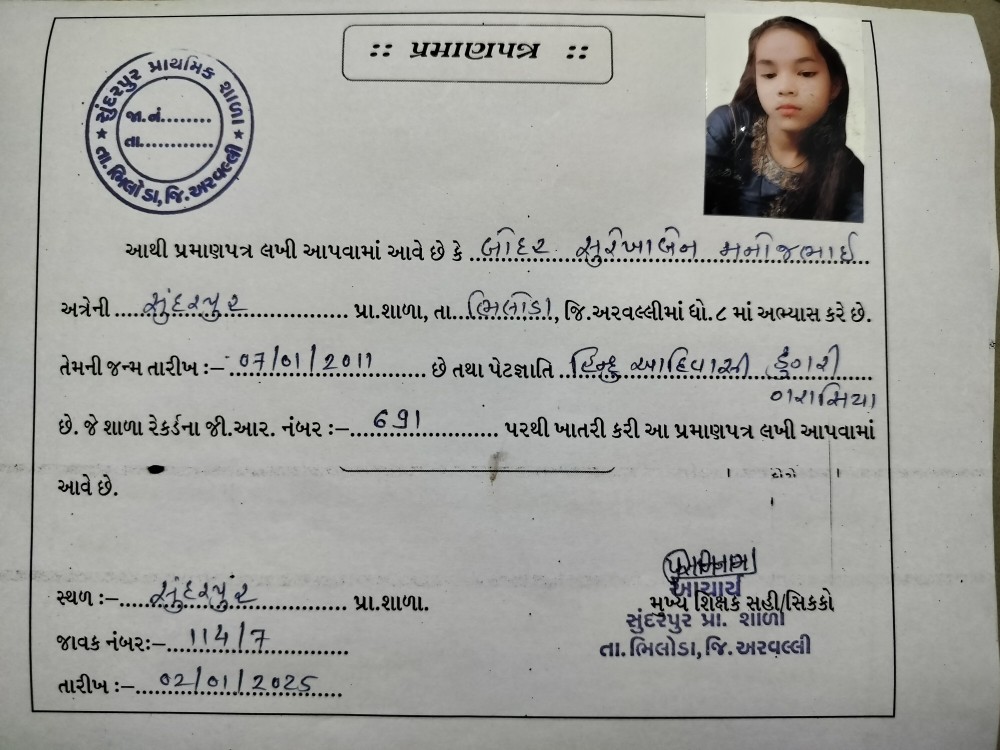 :: પ્રમાણપત્ર ::
સુંદરપુર પ્રાથમિક શાળા
જા.નં.........
તા.............
★ તા.ભિલોડા,જિ.અરવલ્લી ★
આથી પ્રમાણપત્ર લખી આપવામાં આવે છે કે ..બોદર સુરેખાબેન મનોજભાઈ
અત્રેની ....સુંદરપુર.................. પ્રા.શાળા, તા...ભિલોડા.., જિ.અરવલ્લીમાં ધો.૮ માં અભ્યાસ કરે છે.
તેમની જન્મ તારીખ :- 07/01/2011 ........ છે તથા પેટજ્ઞાતિ ..હિન્દુ આદિવાસી ડુંગરી
ગરાસિયા
છે. જે શાળા રેકર્ડના જી.આર. નંબર :-....691............ પરથી ખાતરી કરી આ પ્રમાણપત્ર લખી આપવામાં
આવે છે.
સ્થળ :-....સુંદરપુર............. પ્રા.શાળા.
આચાર્ય
મુખ્ય શિક્ષક સહી/સિકકો
સુંદરપુર પ્રા. શાળા
જાવક નંબર:-...114/7............
તા.ભિલોડા, જિ.અરવલ્લી
તારીખ :-...02/01/2025......